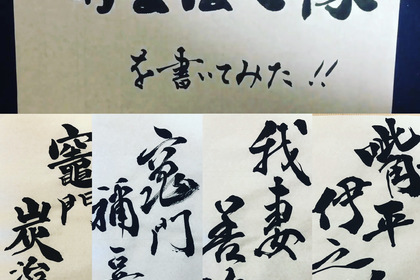 を書いてみた!!
竈門
炭治
竈門
禰豆
我妻
善
嘴平
伊之